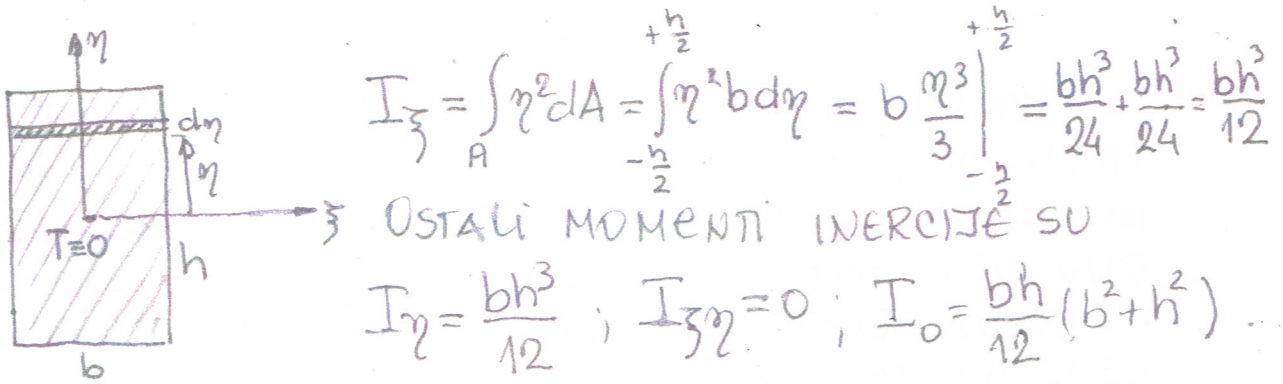 η
dη
η
ξ
T≡0
h
b
I_ξ = ∫_A η² dA = ∫_{-h/2}^{+h/2} η² b dη = b η³/3 |_{-h/2}^{+h/2} = bh³/24 + bh³/24 = bh³/12
OSTALI MOMENTI INERCIJE SU
I_η = bh³/12 ; I_ξη = 0 ; I_o = bh/12 (b² + h²) ...